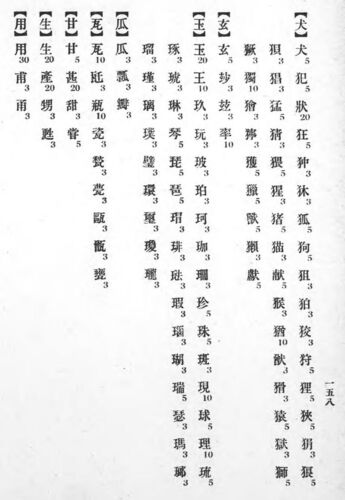 【犬】犬5 犯5 狀20 狂5 狆3 狐5 狗5 狙3 狛3 狡3 狩5 狸5 狹5 狷3 狠5
狽3 猖3 猛5 猪3 猥3 猩3 猪5 猫3 献5 猴3 猶10 猷3 猾3 猿5 獄3 獅5
獗3 獨10 獪3 獲5 獵5 獸5 獺3 獻5
【玄】玄5 玆3 率10
【玉】玉20 王10 玖3 玩3 玻3 珀3 珂3 珈3 珊3 珍5 珠5 斑3 現10 球5 理10 琉5
琢3 琥3 琳3 琴5 琵5 琶5 琲3 琺3 瑕3 瑙3 瑚3 瑞5 瑟3 瑪3
瑠3 瑾3 璃3 璞3 璧3 環3 璽3 瓊3 瓏3
【瓜】瓜3 瓢3 瓣3
【瓦】瓦10 瓶10 瓷3 甌3 甑3 甕3
【甘】甘5 甚20 甜3
【生】生20 產20 甥3 甦3
【用】用30 甫3 甬3
一五八